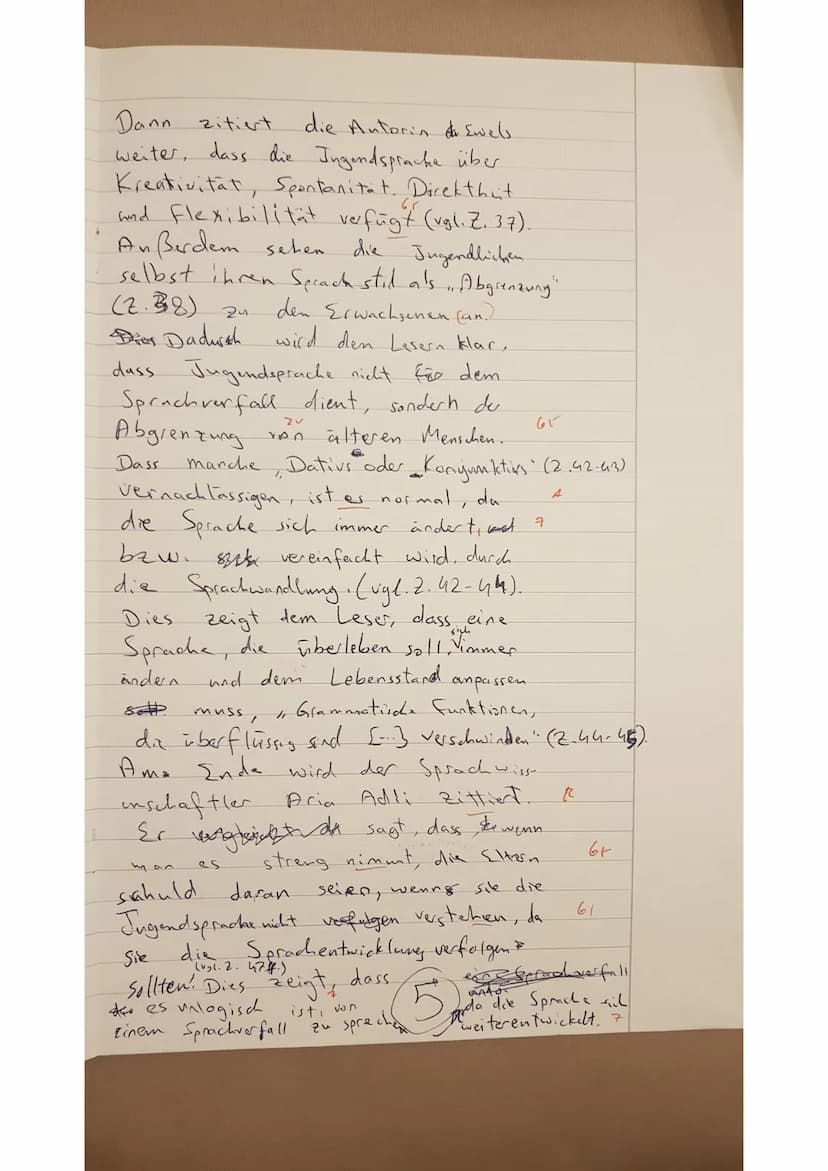 Dann zitiert die Autorin Ewels
weiter, dass die Jugendsprache über
Kreativität, Spontanität, Direktheit
Gr
und Flexibilität verfügt (vgl. Z. 37).
Außerdem sehen die Jugendlichen
selbst ihren Sprachstil als „Abgrenzung"
(Z. 38) zu den Erwachsenen (an.)
Dadurch wird dem Lesern klar,
dass Jugendsprache nicht dem
Sprachverfall dient, sondern der
zu Gr
Abgrenzung von älteren Menschen.
Dass manche „Dativ oder Konjunktiv" (Z. 42-43)
vernachlässigen, ist es normal, da A
die Sprache sich immer ändert, 7
bzw. vereinfacht wird, durch
die Sprachwandlung. (vgl. Z. 42-44).
Dies zeigt dem Leser, dass eine
sich
Sprache, die überleben soll, immer
ändern und dem Lebensstand anpassen
muss, „Grammatische Funktionen,
die überflüssig sind [...] verschwinden" (Z. 44-45).
Am Ende wird der Sprachwiss-
enschaftler Aria Adli zittiert. R
Er sagt, dass wenn
man es streng nimmt, die Eltern Gr
schuld daran seien, wenn sie die
Jugendsprache nicht verstehen, da Gr
sie die Sprachentwicklung verfolgen
(vgl. Z. 47f.)
sollten! Dies zeigt, dass
es unlogisch ist, von
einem Sprachverfall zu sprechen
5
da die Sprache sich
weiterentwickelt. 7